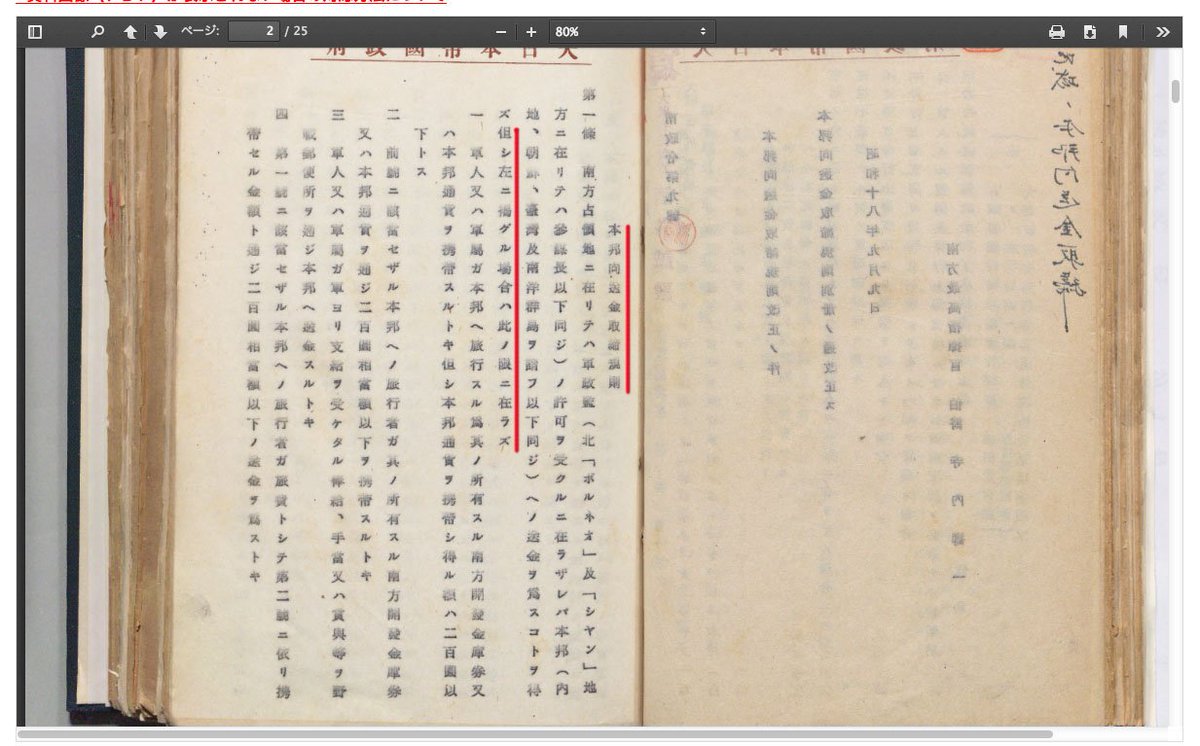 ページ: 2 / 25
80%
大日本帝國政府
南政令第九號
本邦向送金取締規則改正ノ件
本邦向送金取締規則別冊ノ通改正ス
昭和十八年九月九日
伯爵 寺内壽一
本邦向送金取締規則
第一條 南方占領地ニ在リテハ軍政監(北「ボルネオ」及「シヤン」地
方ニ在リテハ參謀長以下同ジ)ノ許可ヲ受クルニ在ラザレバ本邦(内
地、朝鮮、臺灣及南洋群島ヲ謂フ以下同ジ)ヘノ送金ヲ爲スコトヲ得
ズ但シ左ニ揭グル場合ハ此ノ限ニ在ラズ
一 軍人又ハ軍屬ガ本邦ヘ旅行スル爲其ノ所有スル南方開發金庫券又
ハ本邦通貨ヲ携帶スルトキ但シ本邦通貨ヲ携帶シ得ル額ハ二百圓以
下トス
二 前號ニ該當セザル本邦ヘノ旅行者ガ其ノ所有スル南方開發金庫券
又ハ本邦通貨ヲ通ジ二百圓相當額以下ヲ携帶スルトキ
三 軍人又ハ軍屬ガ軍ヨリ支給ヲ受ケタル俸給、手當又ハ賞與等ヲ野
戰郵便所ヲ通ジ本邦ヘ送金スルトキ
四 第一號ニ該當セザル本邦ヘノ旅行者ガ旅費トシテ第二號ニ依リ携
帶セル金額ト通ジ二百圓相當額以下ノ送金ヲ爲ストキ